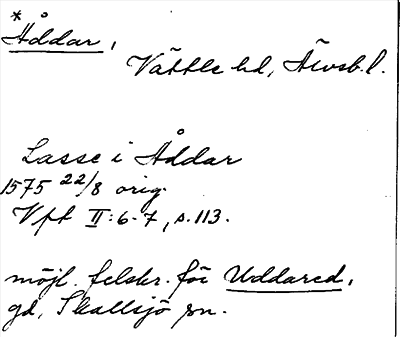 * Åddar,
Vättle hd, Älvsb. l.
Lasse i Åddar
1575 22/8 orig.
Vft II:6-7, s. 113.
möjl. felskr. för Uddared,
gd, Skallsjö sn.